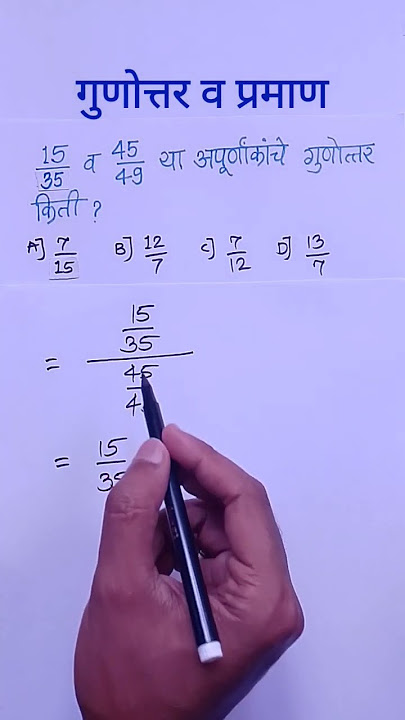 गुणोत्तर व प्रमाण
15/35 व 45/49 या अपूर्णांकांचे गुणोत्तर
किती ?
A] 7/15 B] 12/7 C] 7/12 D] 13/7
= 15/35
45/4
= 15/35